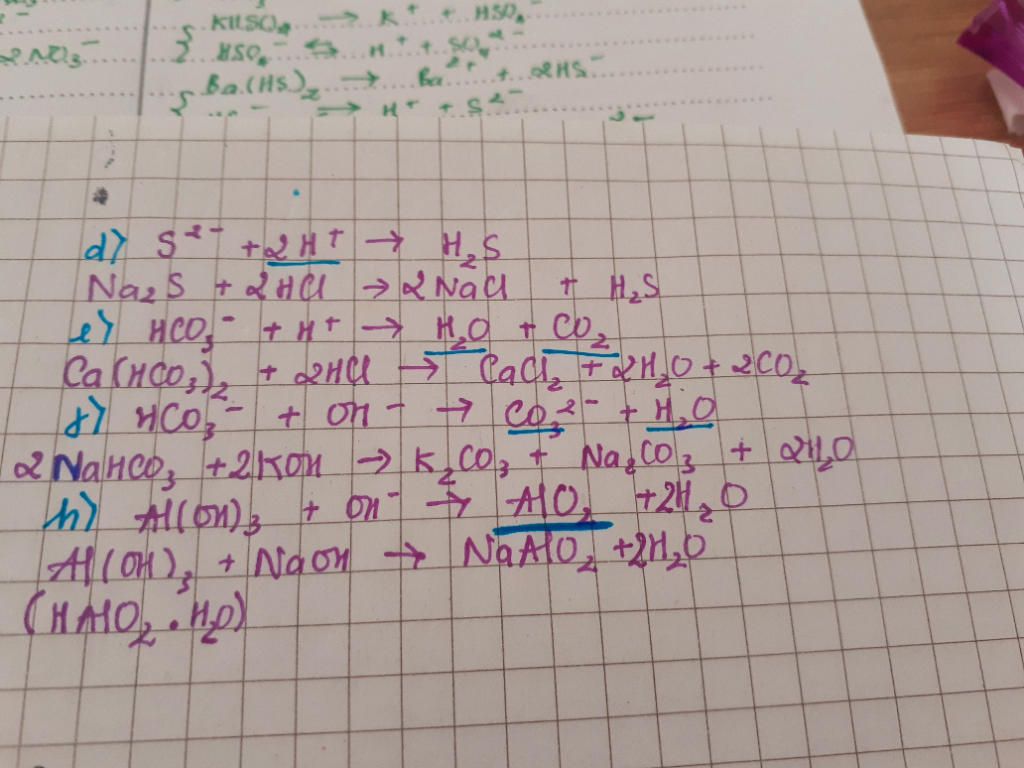 2NO₃⁻
{ KHSO₄ → K⁺ + HSO₄⁻
HSO₄⁻ ⇆ H⁺ + SO₄²⁻
{ Ba(HS)₂ → Ba²⁺ + 2HS⁻
⇌ H⁺ + S²⁻
d) S²⁻ + 2H⁺ → H₂S
Na₂S + 2HCl → 2NaCl + H₂S
e) HCO₃⁻ + H⁺ → H₂O + CO₂
Ca(HCO₃)₂ + 2HCl → CaCl₂ + 2H₂O + 2CO₂
f) HCO₃⁻ + OH⁻ → CO₃²⁻ + H₂O
2NaHCO₃ + 2KOH → K₂CO₃ + Na₂CO₃ + 2H₂O
h) Al(OH)₃ + OH⁻ → AlO₂ + 2H₂O
Al(OH)₃ + NaOH → NaAlO₂ + 2H₂O
(HAlO₂.H₂O)